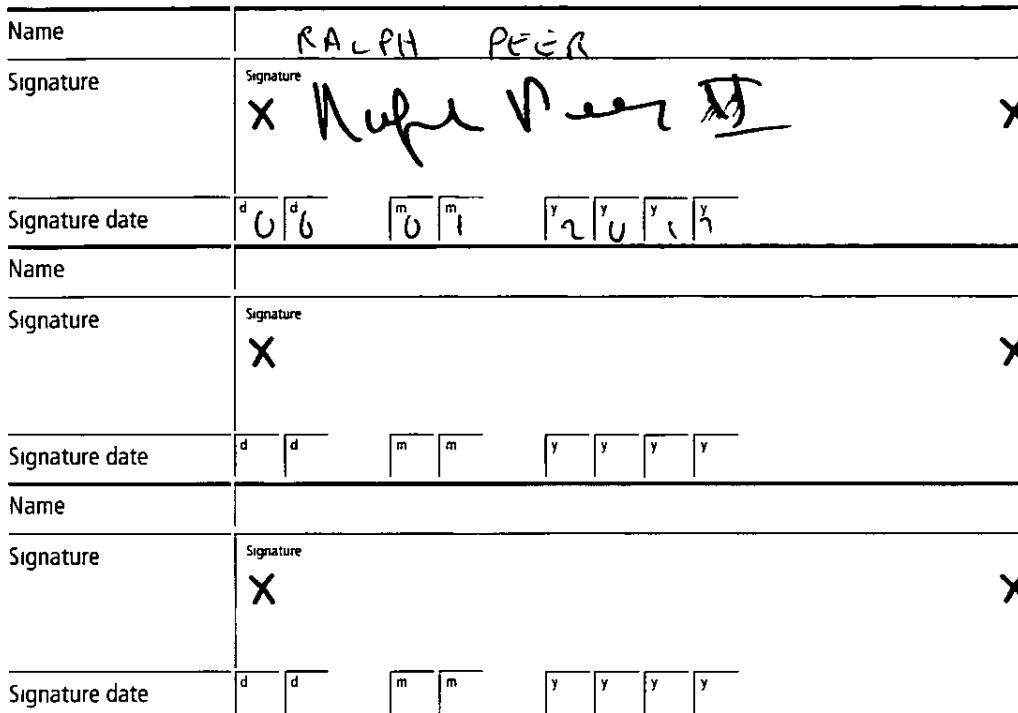 Name RALPH PEER
Signature Signature
X Ralph Peer II X
Signature date d 0 d 6 m 0 m 1 y 2 y 0 y 1 y
Name
Signature Signature
X X
Signature date d d m m y y y y
Name
Signature Signature
X X
Signature date d d m m y y y y